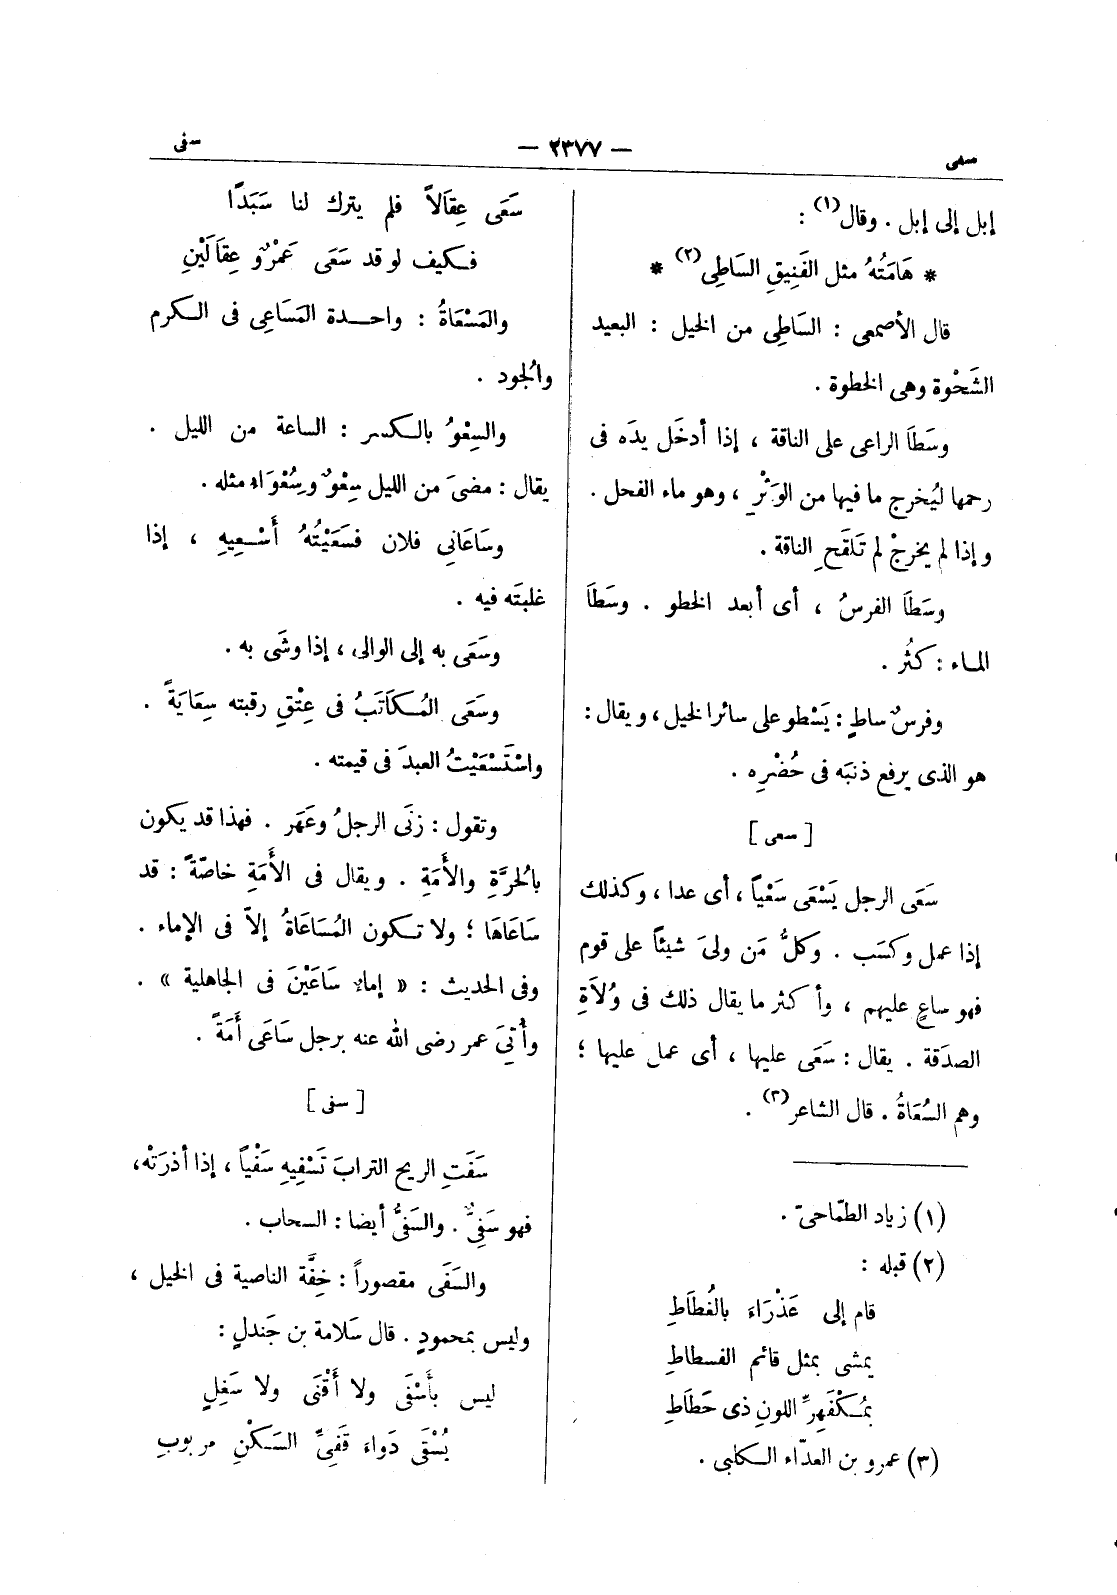 سعى
— ٢٣٧٧ —
سفى
إبل إلى إبل . وقال(١) :
* هَامَتُهُ مثل الفَنِيقِ السَاطِى(٢) *
قال الأصمعى : السَاطِى من الخيل : البعيد
الشَحْوة وهى الخطوة .
وسَطَا الراعى على الناقة ، إذا أدخَل يدَه فى
رحمها ليُخرج ما فيها من الوَثْرِ ، وهو ماء الفحل .
وإذا لم يخرجْ لم تَلقَحِ الناقة .
وسَطَا الفرسُ ، أى أبعد الخطو . وسَطَا
الماء : كثُر .
وفرسٌ ساطٍ : يَسْطو على سائر الخيل ، ويقال :
هو الذى يرفع ذنبَه فى حُضْرِه .
[ سعى ]
سَعَى الرجل يَسْعَى سَعْياً ، أى عدا ، وكذلك
إذا عمل وكسَب . وكلُّ مَن ولىَ شيئاً على قوم
فهو ساعٍ عليهم ، وأكثر ما يقال ذلك فى وُلاَةِ
الصدَقة . يقال : سَعَى عليها ، أى عمل عليها ؛
وهم السُعَاةُ . قال الشاعر(٣) .
(١) زياد الطمّاحىّ .
(٢) قبله :
قام إلى عَذْرَاءَ بالغُطَاطِ
يمشى بمثل قائم الفسطاطِ
بمُكْفَهِرِّ اللونِ ذى حَطَاطِ
(٣) عمرو بن العدّاء الكلبى .
سَعَى عِقَالاً فلم يترك لنا سَبَدًا
فكيف لو قد سَعَى عَمْرٌو عِقَالَيْنِ
والمَسْعَاةُ : واحدة المَسَاعِى فى الكرم
والجُود .
والسِعْوُ بالكسر : الساعة من الليل .
يقال : مضىَ من الليل سِعْوٌ وسِعْوَاء مثله .
وسَاعَانِى فلان فسَعَيْتُهُ أَسْعِيهِ ، إذا
غلبتَه فيه .
وسَعَى به إلى الوالى ، إذا وشَى به .
وسَعَى المُكَاتَبُ فى عِتْقِ رقبته سِعَايَةً .
واسْتَسْعَيْتُ العبدَ فى قيمته .
وتقول : زنَى الرجلُ وعَهَر . فهذا قد يكون
بالحُرَّةِ والأَمَةِ . ويقال فى الأَمَةِ خاصّةً : قد
سَاعَاهَا ؛ ولا تكون المُسَاعَاةُ إلاّ فى الإماء .
وفى الحديث : « إماءٌ سَاعَيْنَ فى الجاهلية » .
وأُتِىَ عمر رضى الله عنه برجل سَاعَى أَمَةً .
[ سفى ]
سَفَتِ الريح الترابَ تَسْفِيهِ سَفْياً ، إذا أذرَتْه،
فهو سَفِىٌّ . والسَفِىُّ أيضا : السحاب .
والسَفَى مقصوراً : خِفَّة الناصية فى الخيل ،
وليس بمحمودٍ . قال سَلامة بن جَندلٍ :
ليس بأَسْفَى ولا أَقْنَى ولا سَغِلٍ
يُسْقَى دَواءَ قَفِىِّ السَكْنِ مربوبِ